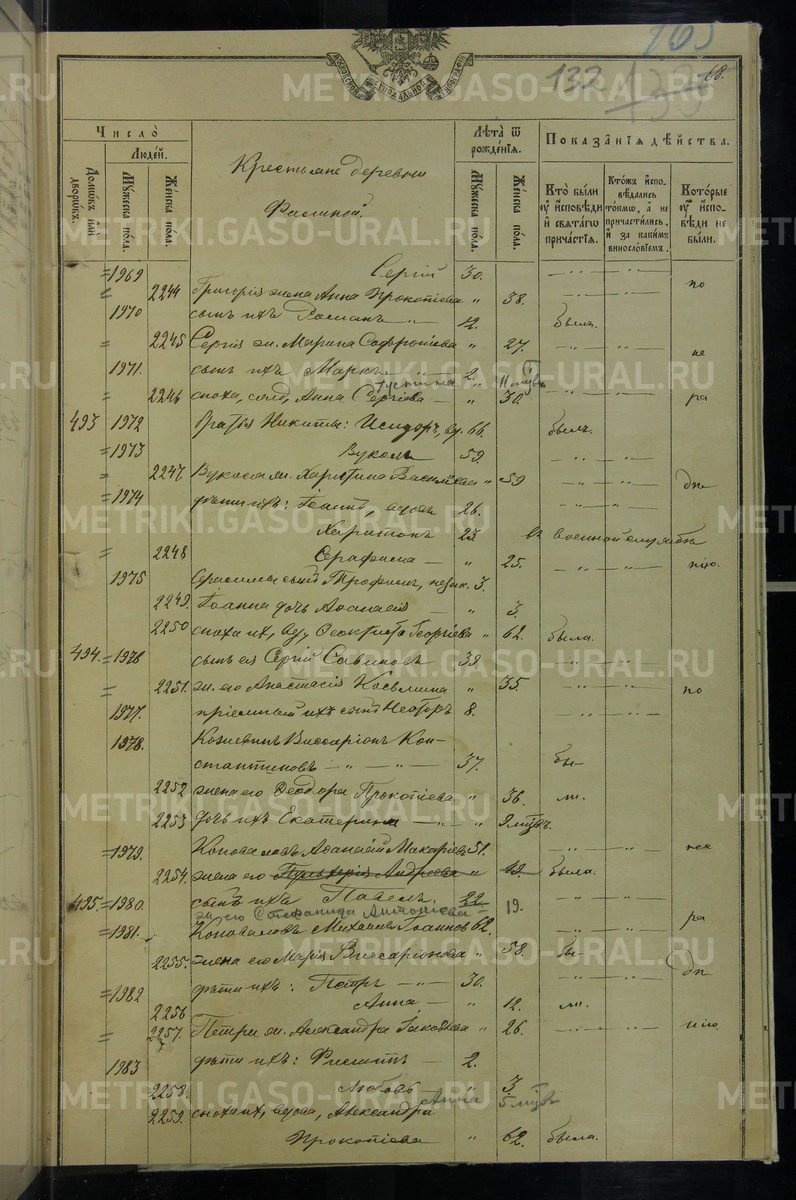 132
68.
Число̀
Людéй.
Лѣта ѿ рождéнїѧ.
Показанїѧ дѣйства.
Домѡ́въ или дворѡ́въ.
Мꙋ́жеска по́ла.
Же́нска по́ла.
Крестьяне деревни
Мꙋ́жеска по́ла.
Же́нска по́ла.
Кто̀ были ᲂу҆ и҆сповѣди и҆ свѧта́гѡ причастїѧ.
Кто́жъ и҆спо вѣдались то́кмѡ, а҆ не причастились, и҆ за какимъ винословїемъ.
Кото́рые ᲂу҆ и҆спо вѣди не были.
1969 Сергій 30.
2244 Григорія жена Анна Прокопіева " 58. по
1970 сынъ ихъ 12. былъ.
2245 Сергія ж. Марина Софроніева " 27. не
1971. сынъ ихъ Маркъ 2.
Устина " 11 мцвъ
2246 сноха, солд. Анна Сергіева " 30. ра
493 1972 братья Никиты: Исидоръ, вд. 66. былъ.
1973 Вуколъ 59.
2247 Вукола ж. Харитина Василіева " 59 дѣ
1974 дѣти ихъ: Іоаннъ, вдовъ 26.
Харитонъ 23 въ военной службѣ
2248 Серафима " 25. нію.
1975 Серафимы сынъ Трофимъ, незак. 3.
2249. Іоанна дочь " 3.
2250 сноха ихъ, вд. Ѳеоктиста Георгіева " 62. была.
494. 1976 сынъ ея Сергій Савиновъ 38.
2251. ж. его Анастасія Косьмина " 35. по
1977. пріемный ихъ сынъ Несторъ 8.
1978. Виссаріонъ Кон-
стантиновъ 37. бы
2252 жена его Ѳеодора Прокопіева " 36. ли.
2253 дочь ихъ Екатерина " 9 мцвъ.
1979. Коноваловъ Аѳанасій Макаріевъ 51. нее
2254. жена его Пульхерія Андреева " была.
495. 1980 сынъ ихъ Павелъ 22.
ж. его Степанида Антоніева 19.
1981. Коноваловъ Михаилъ Іоанновъ 62. ра
2255. жена его Марія Виссаріонова " 58. бы
1982 дѣти ихъ: Петръ 30. дѣ
2256 Анна " 12. ли.
2257. Петра ж. Александра Іаковлева " 26. нію.
1983 дѣти ихъ: 2.
2258. Любовь " 3
Анна 5 мцвъ
2259. сноха ихъ, вдова, Александра
Прокопіева " 62. была.
METRIKI.GASO-URAL.RU